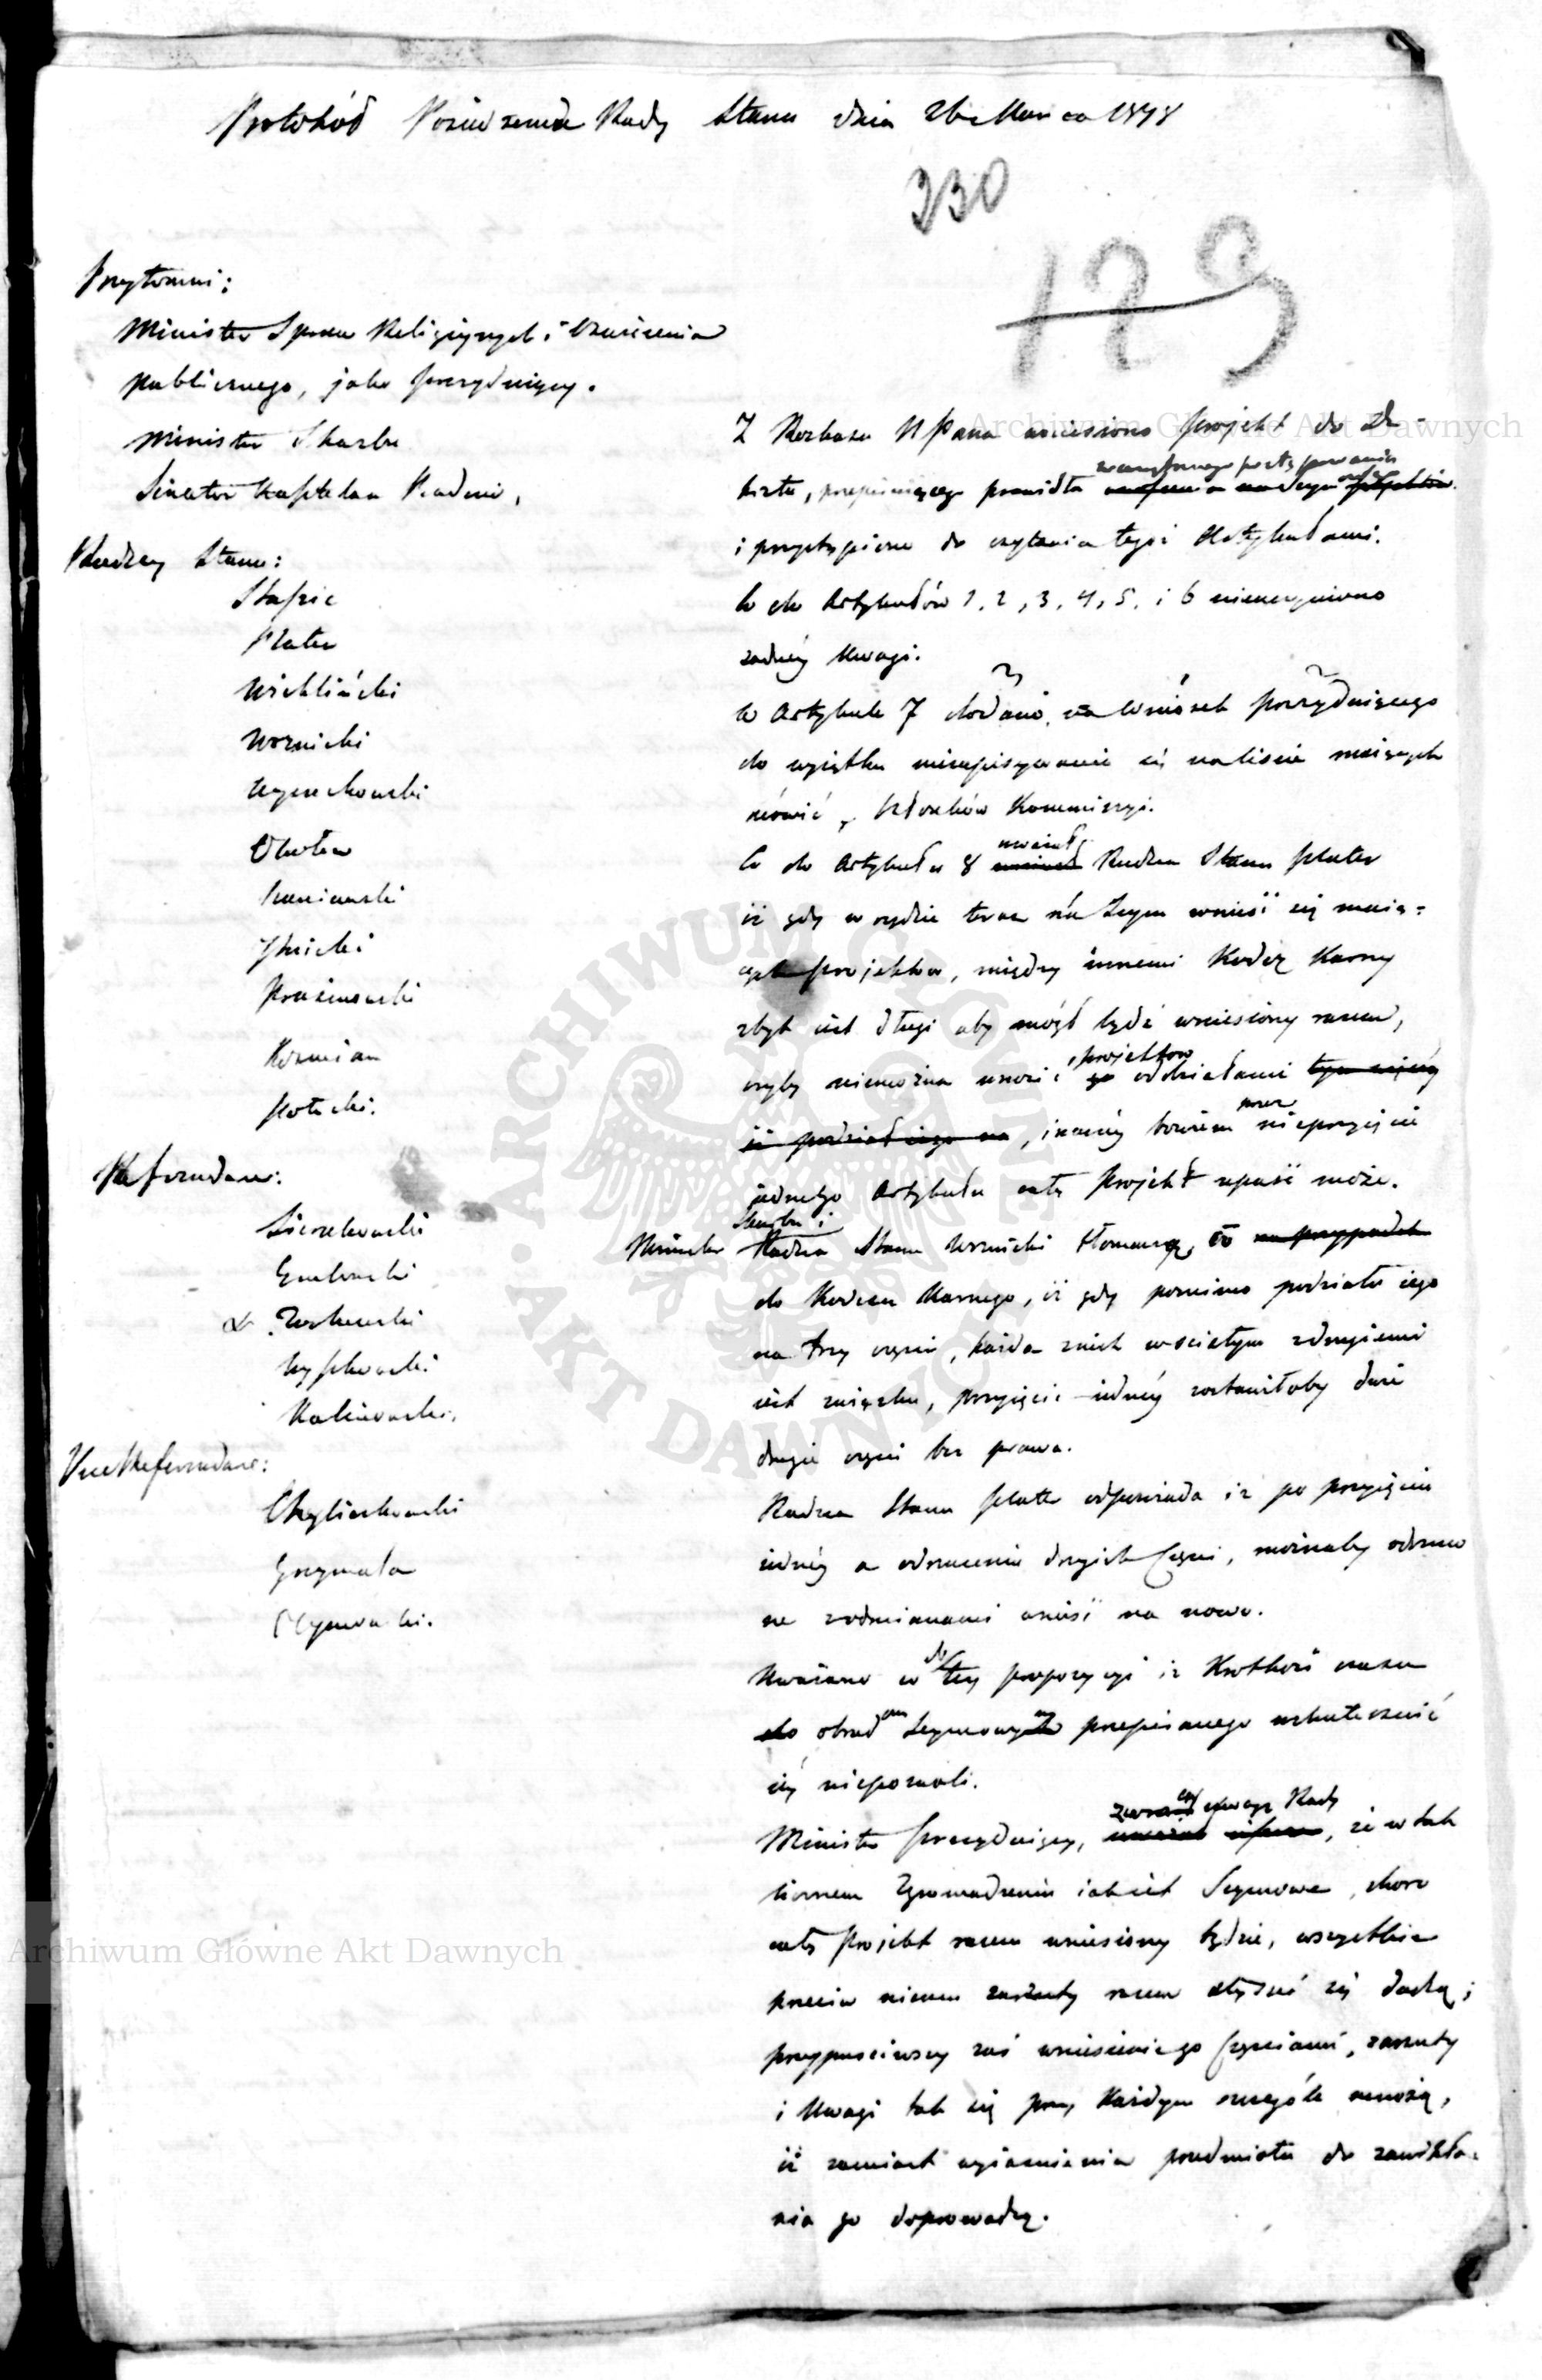 Protokół Posiedzenia Rady Stanu dnia 26 Marca 1818
330
129
Przytomni:
Minister Spraw Religijnych i Oświecenia
publicznego, jako prezydujący.
Minister Skarbu
Senator Kasztelan
Radzcy Stanu:
Staszic
Plater
Wichliński
Woznicki
Wyczechowski
Okołow
Potocki.
Referendarze:
Kalinowski.
Vice Referendarze:
Chyliczkowski
Grzymała
Z Rozkazu N Pana wniesiono projekt do De-
kretu, przepisującego prawidła wewnętrznego postępowania
i przystąpiono do czytania tegoż Artykułami.
Co do Artykułów 1, 2, 3, 4, 5, i 6 nieuczyniono
żadnéy Uwagi.
W Artykule 7 dodano, na wniosek prezydującego
do wyiątku niezapisywania się na liście maiących
mówić, Członków Kommissyi.
Co do Artykułu 8 uważał Radzca Stanu Plater
iż gdy w rzędzie teraz na Seym wnieść się maią-
cych projektów, między innemi Kodex Karny
zbyt iest długi aby mógł bydź wniesiony razem,
czyby niemożna wnosić projektow oddziałami
, inaczéy bowiem przez nieprzyięcie
iednego Artykułu cały Projekt upaść może.
Minister Skarbu i Radzca Stanu Woznicki tłomaczą, co
do Kodexu Karnego, iż gdy pomimo podziału iego
na trzy części, każda z nich w ścisłym z drugiemi
iest związku, przyięcie iednéy zostawiłoby dwie
drugie części bez prawa.
Radzca Stanu Plater odpowiada iż po przyięciu
iednéy a odrzuceniu drugich Części, możnaby odrzuco
ne z odmianami wnieść na nowo.
Uważano co do tey propozycyi iż Krótkość czasu
obradom Seymowym przepisanego uskutecznić
iéy niepozwoli.
Minister prezydujący, zwraca uwagę Rady, że w tak
licznem Zgromadzeniu iak iest Seymowe, skoro
cały projekt razem wniesiony będzie, wszystkie
przeciw niemu zarzuty razem słyszeć się dadzą;
przypuściwszy zaś wniesienie go Częściami, zarzuty
i Uwagi tak się przy Każdym szczególe mnożą,
iż zamiast wyiaśnienia przedmiotu do zawikła-
nia go doprowadzą.
Archiwum Główne Akt Dawnych
Archiwum Główne Akt Dawnych
ARCHIWUM GŁÓWNE AKT DAWNYCH